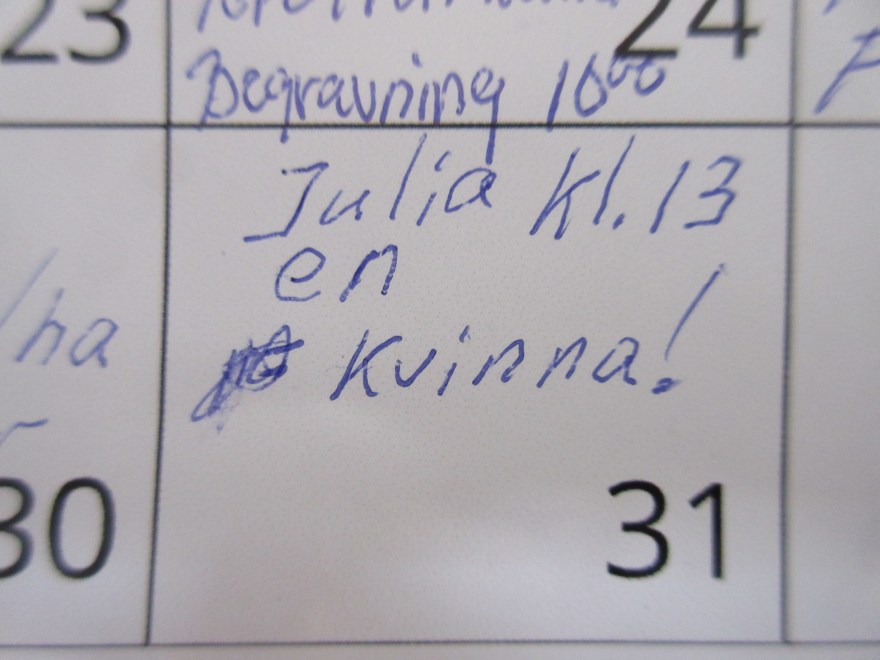 23
24
Begravning 10⁰⁰
Julia kl. 13
en
kvinna!
ha
30
31